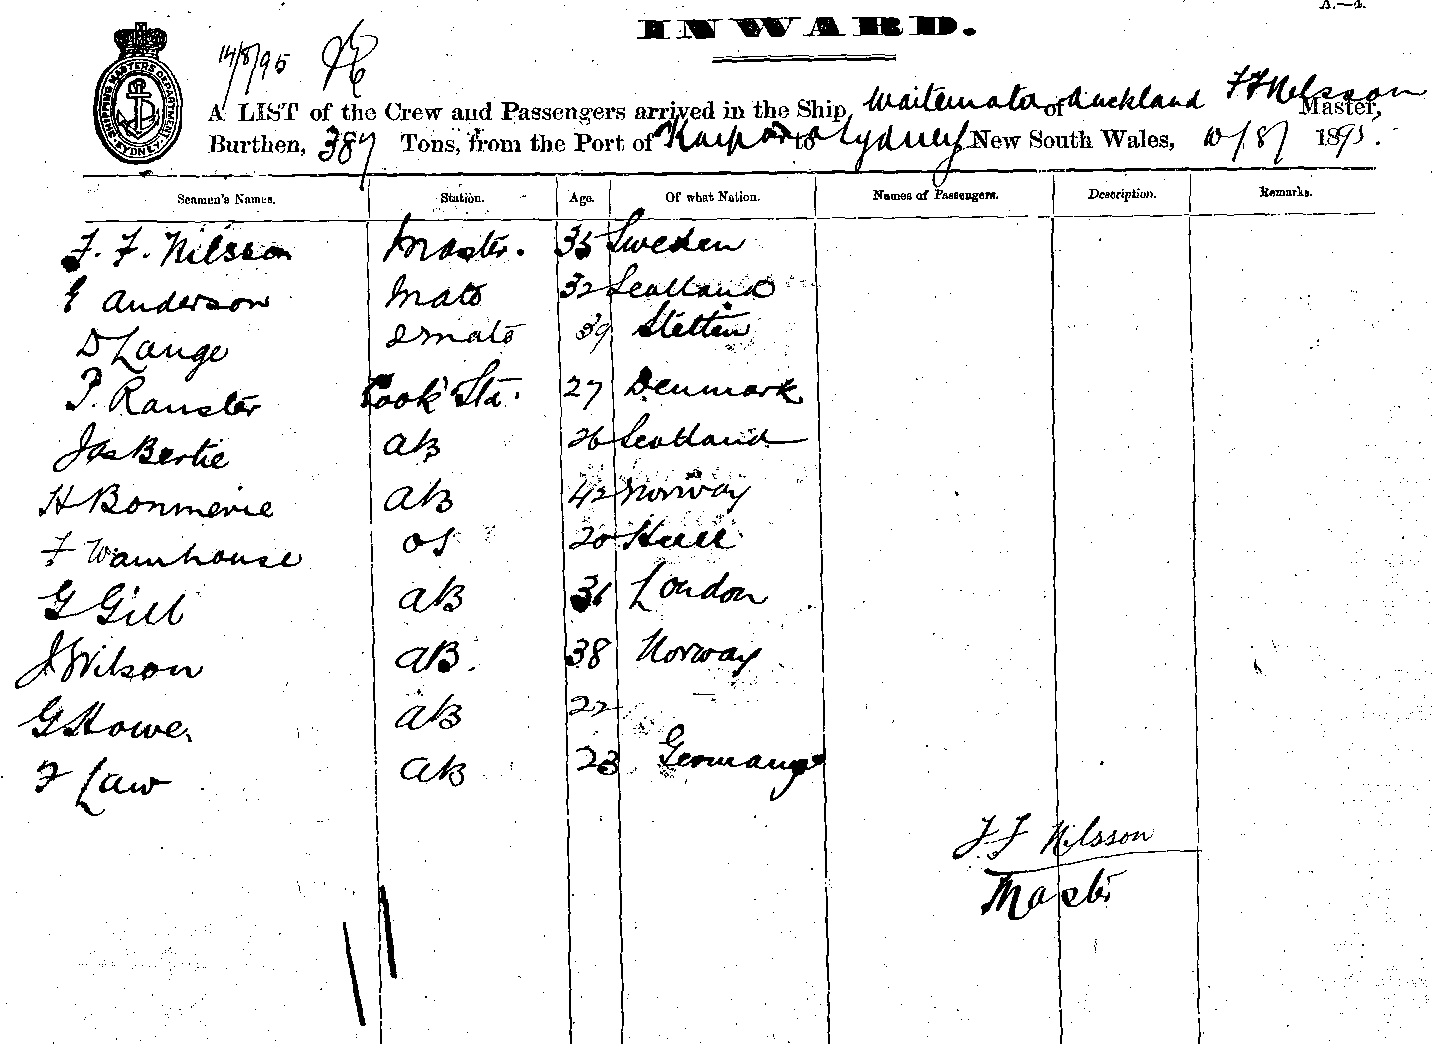 A.—4.
INWARD.
14/8/95
SHIPPING MASTERS DEPARTMENT SYDNEY
A LIST of the Crew and Passengers arrived in the Ship Waitemata of Auckland F F Nilsson Master,
Burthen, 387 Tons, from the Port of Kaipara to Sydney New South Wales, 10/8/ 1895.
Seamen's Names. Station. Age. Of what Nation. Names of Passengers. Description. Remarks.
F. F. Nilsson Master. 35 Sweden
E Anderson Mate 32 Scotland
D Lange 2 Mate 39 Stettin
P. Rauster Cook Std. 27 Denmark
Jas Bertie AB 26 Scotland
H Bonmerie AB 42 Norway
F Wamhouse OS 20 Hull
G Gill AB 31 London
J Wilson AB. 38 Norway
G Howe. AB 22
F Law AB 23 Germany
F F Nilsson
Master